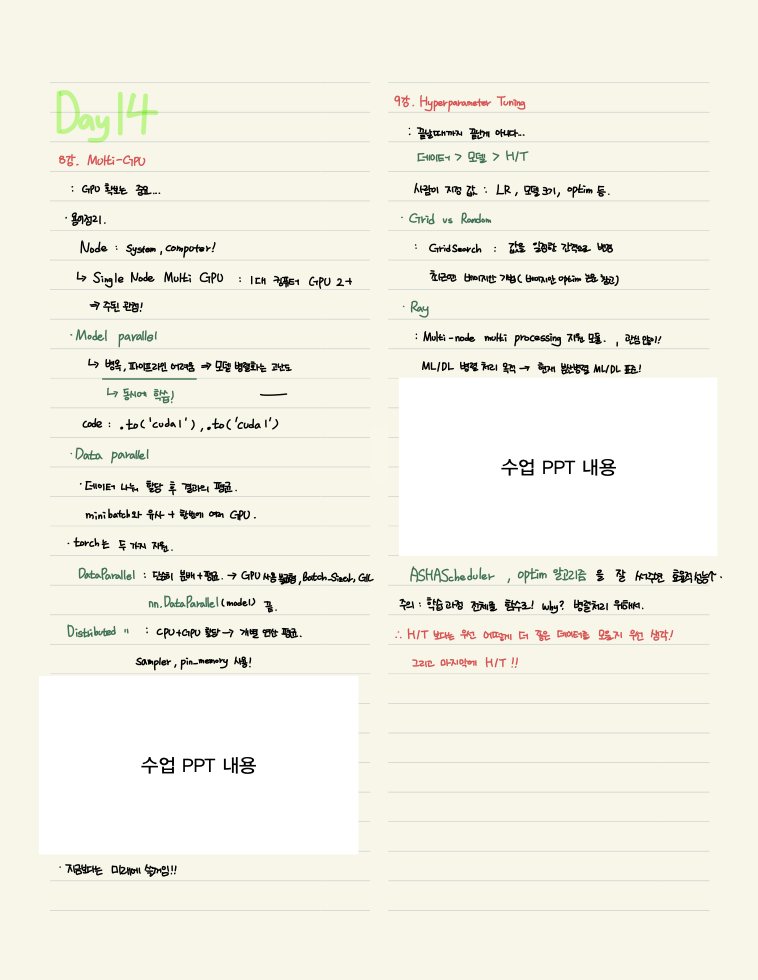 Day 14
8강. Multi-GPU
: GPU 확보는 중요...
· 용어정리.
Node : System, computer!
↳ Single Node Multi GPU : 1대 컴퓨터 GPU 2+
⇒ 주된 관점!
· Model parallel
↳ 병목, 파이프라인 어려움 ⇒ 모델 병렬화는 고난도
↳ 동시에 학습!
code : .to('cuda1'), .to('cuda1')
· Data parallel
· 데이터 나눠 할당 후 결과의 평균.
minibatch와 유사 + 한번에 여러 GPU.
· torch는 두 가지 지원.
DataParallel : 단순히 분배+평균. → GPU 사용 불균형, Batch_Size↓, GIL
nn.DataParallel(model) 끝.
Distributed " : CPU+GPU 할당 → 개별 연산 평균.
Sampler, pin_memory 사용!
수업 PPT 내용
· 지금보다는 미래에 쓸거임!!
9강. Hyperparameter Tuning
: 끝날때까지 끝난게 아니다...
데이터 > 모델 > H/T
사람이 지정 값 : LR, 모델 크기, optim 등.
· Grid vs Random
: GridSearch : 값을 일정한 간격으로 변경
최근엔 베이지안 기법 ( 베이지안 optim 논문 참고)
· Ray
: Multi-node multi processing 지원 모듈. , 관심 많이!
ML/DL 병렬 처리 목적 → 현재 분산병렬 ML/DL 표준!
수업 PPT 내용
ASHAScheduler , optim 알고리즘 을 잘 써주면 효율적 성능↑.
주의 : 학습 과정 전체를 함수로! why? 병렬처리 위해서.
∴ H/T 보다는 우선 어떻게 더 좋은 데이터를 모을지 우선 생각!
그리고 마지막에 H/T !!